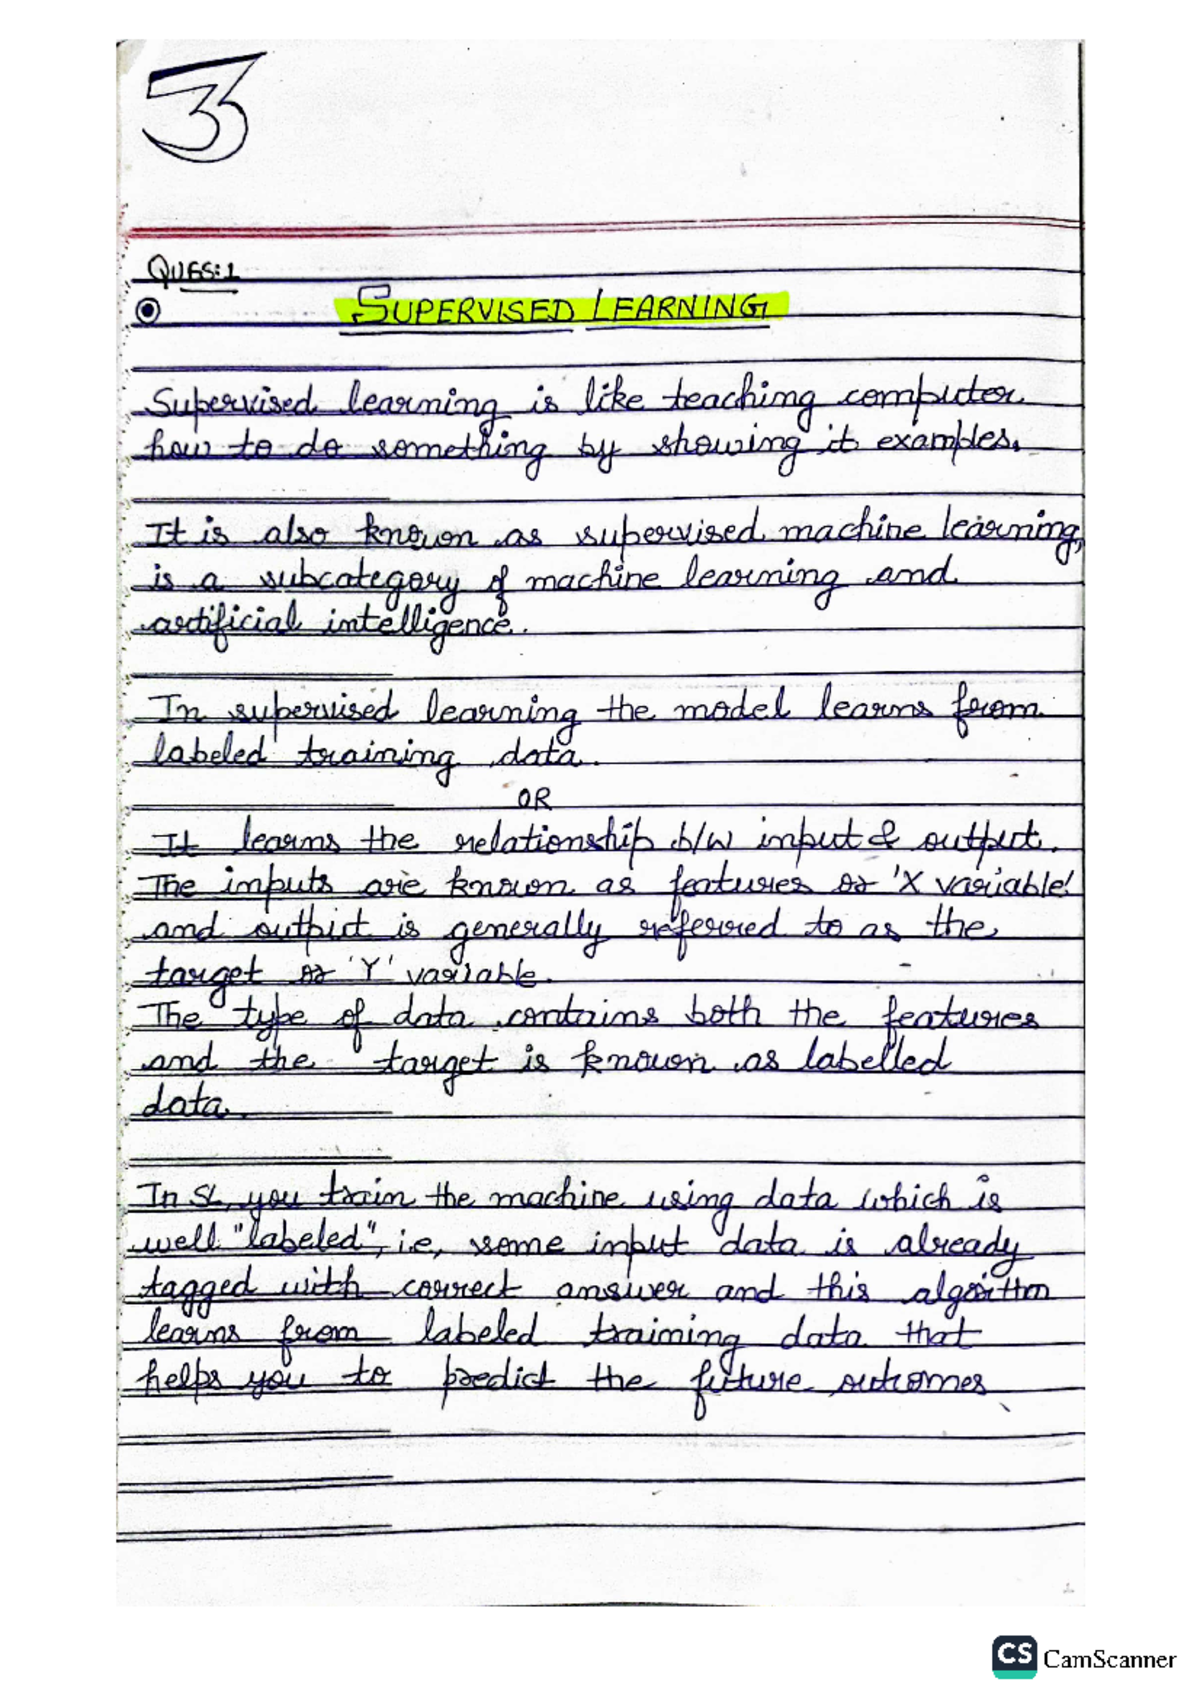 3
QUES:1
SUPERVISED LEARNING
Supervised learning is like teaching computer
how to do something by showing it examples.
It is also known as supervised machine learning,
is a subcategory of machine learning and
artificial intelligence.
In supervised learning the model learns from
labeled training data.
OR
It learns the relationship b/w input & output.
The inputs are known as features or 'X variable'
and output is generally referred to as the
target or 'Y' variable.
The type of data contains both the features
and the target is known as labelled
data.
In SL, you train the machine using data which is
well "labeled", i.e, some input data is already
tagged with correct answer and this algorithm
learns from labeled training data that
helps you to predict the future outcomes
CS CamScanner